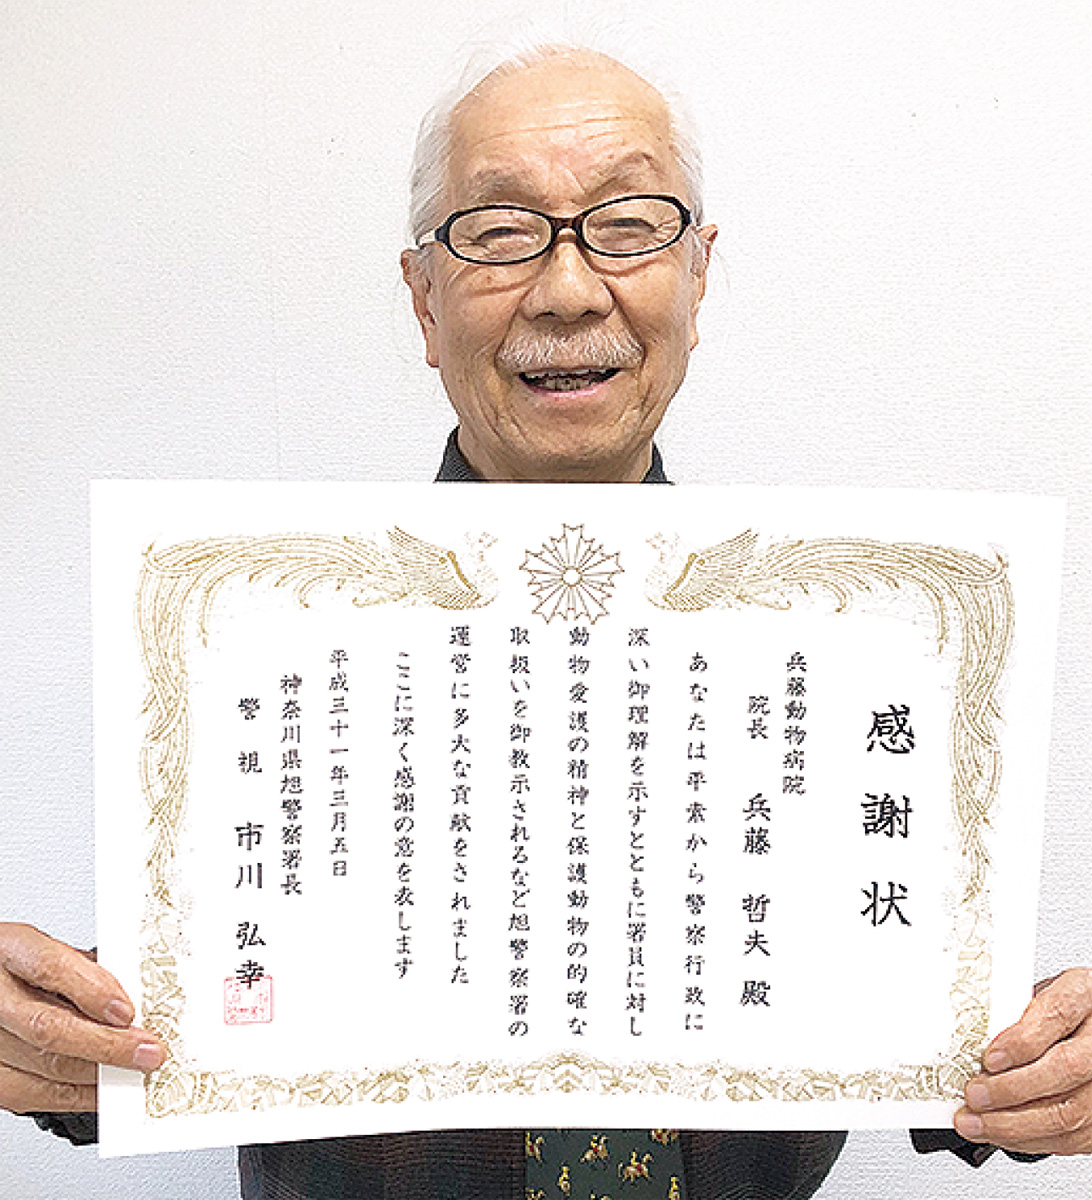 感謝状
兵藤動物病院
院長 兵藤 哲夫 殿
あなたは平素から警察行政に
深い御理解を示すとともに署員に対し
動物愛護の精神と保護動物の的確な
取扱いを御教示されるなど旭警察署の
運営に多大な貢献をされました
ここに深く感謝の意を表します
平成三十一年三月五日
神奈川県旭警察署長
警視 市川 弘幸